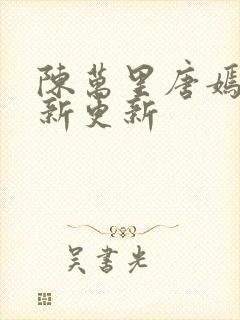 陳萬里唐嫣
新更新
吴書光